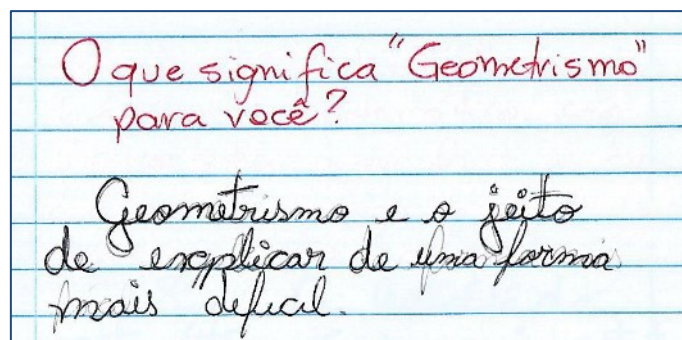 O que significa "Geometrismo"
para você?
Geometrismo e o jeito
de explicar de uma forma
mais defical.